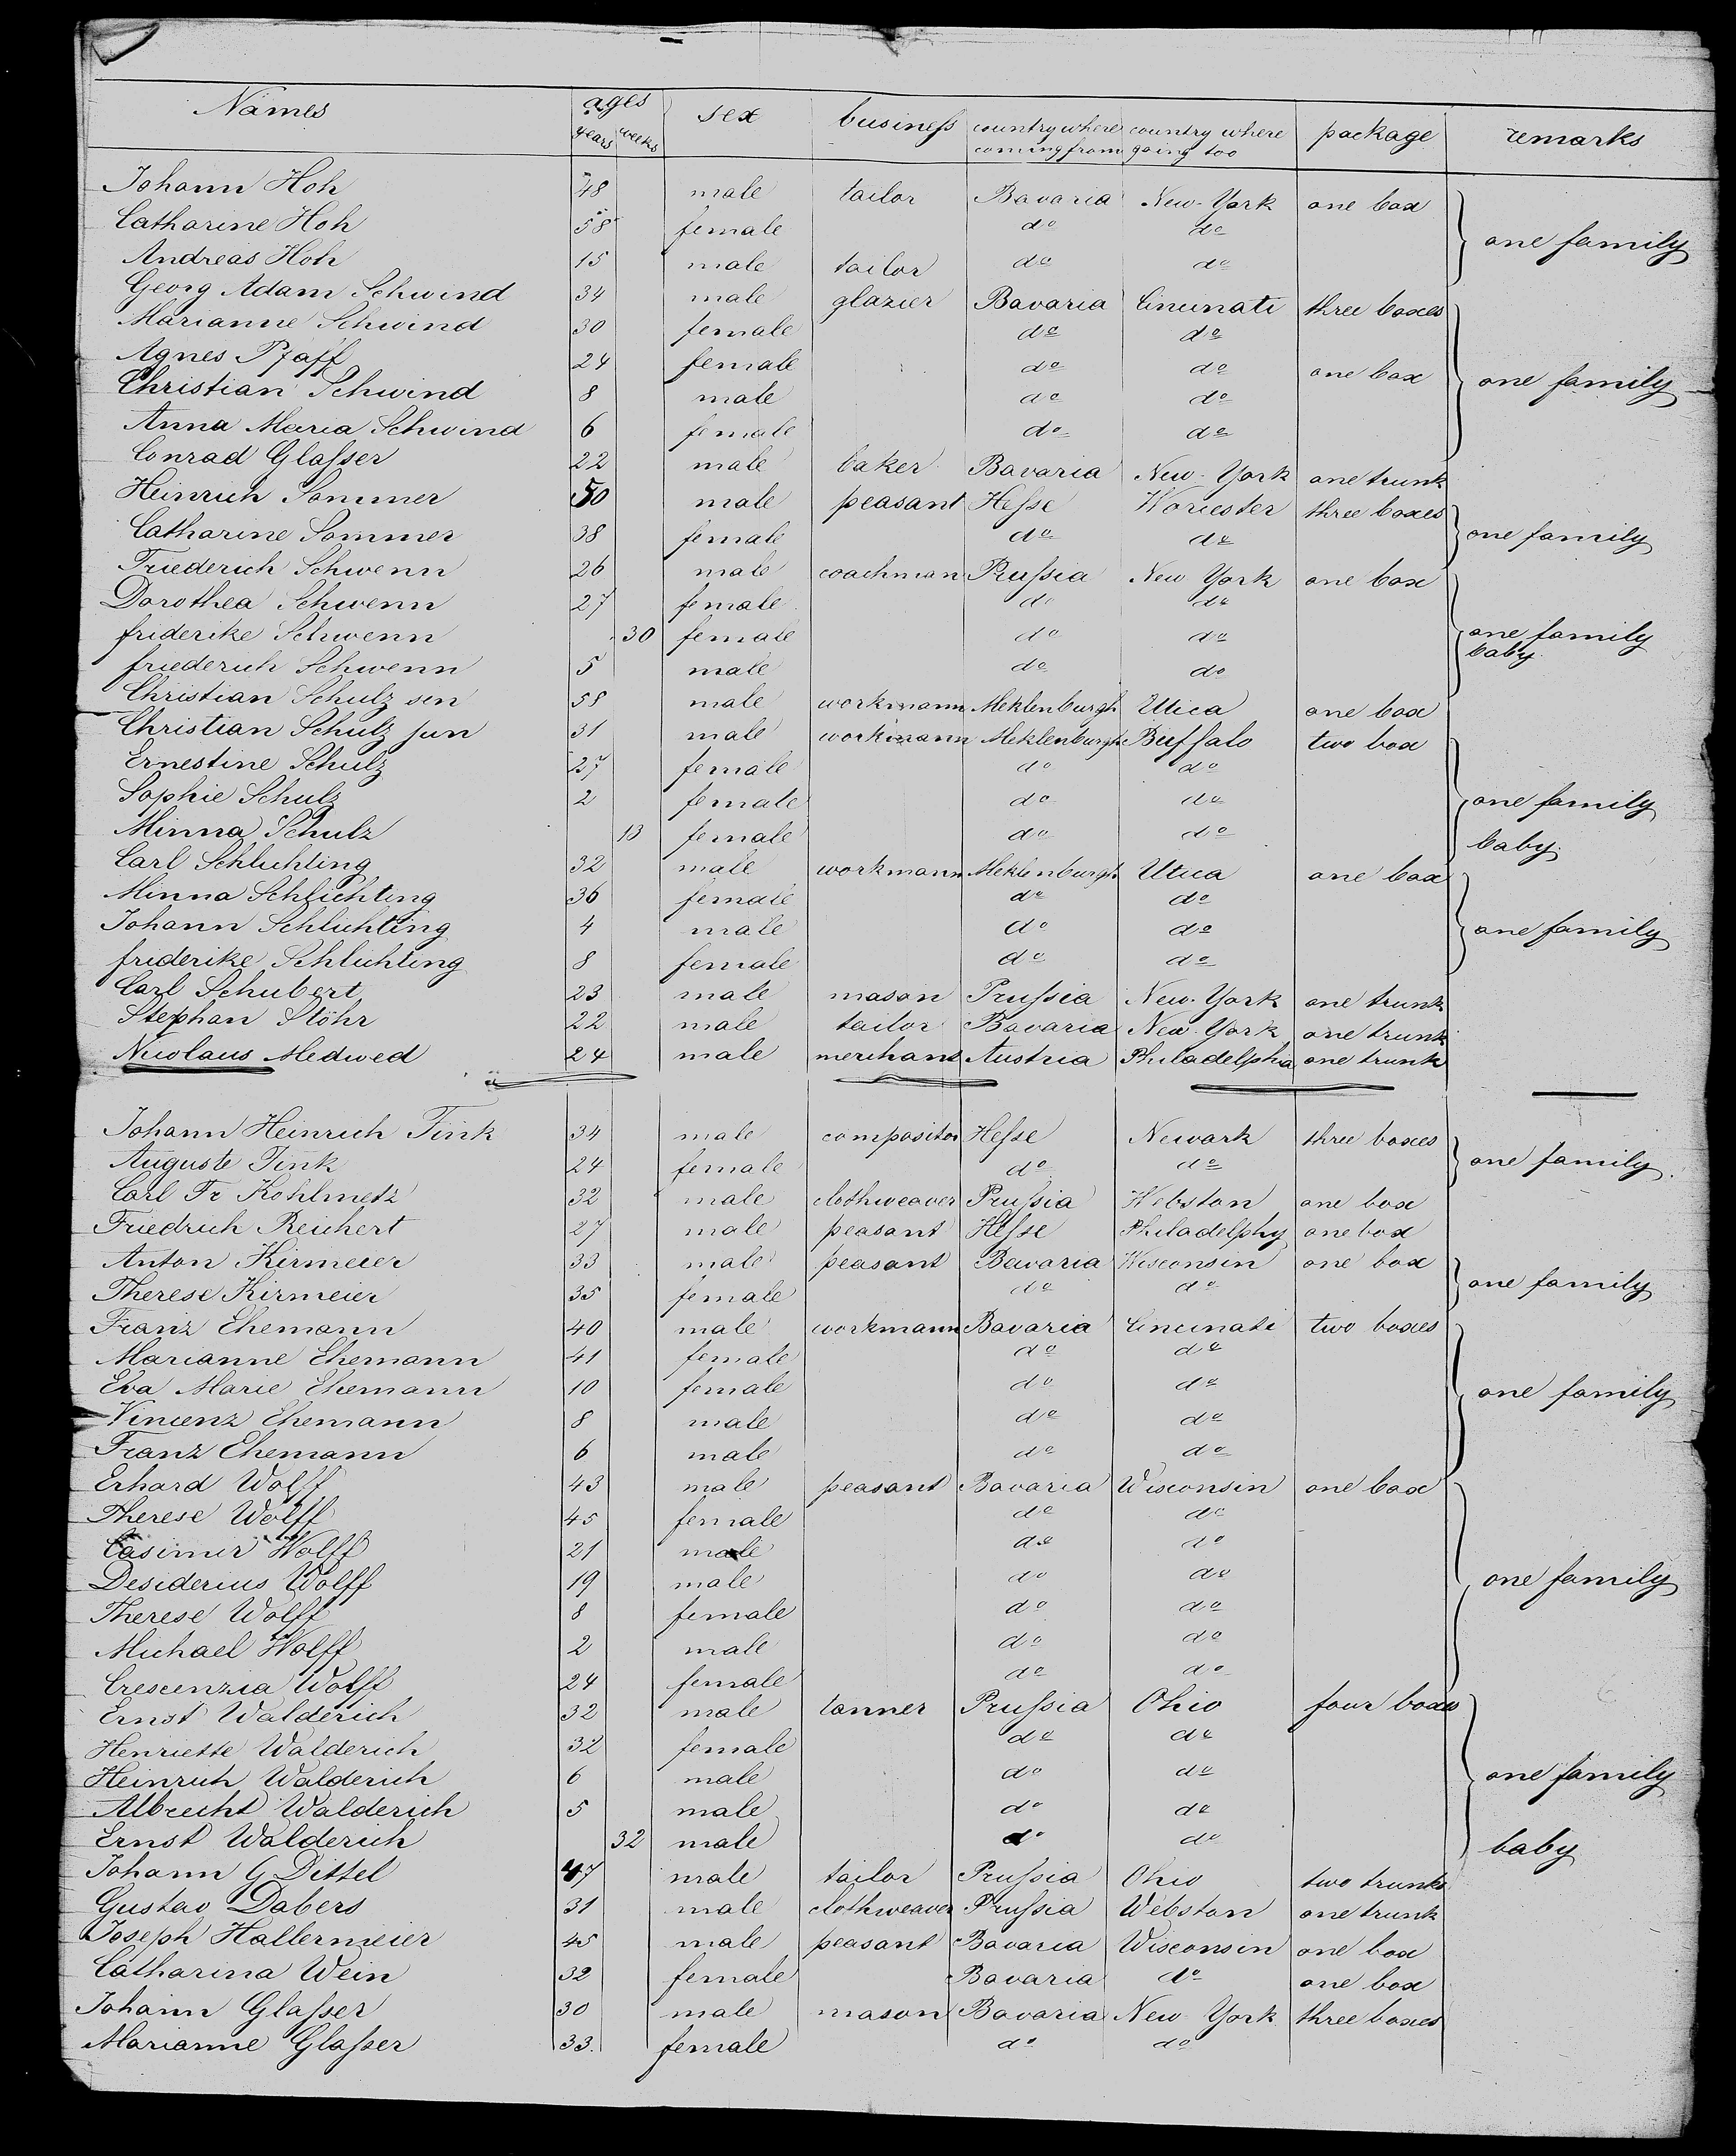 Names ages years weeks sex business country where coming from country where going too package remarks
Johann Hoh 48 male tailor Bavaria New-York one box
Catharine Hoh 58 female do do one family
Andreas Hoh 15 male tailor do do
Georg Adam Schwind 34 male glazier Bavaria Cincinati three boxes
Marianne Schwind 30 female do do
Agnes Pfaff 24 female do do one box one family
Christian Schwind 8 male do do
Anna Maria Schwind 6 female do do
Conrad Glaſser 22 male baker Bavaria New-York one trunk
Heinrich Sommer 50 male peasant Heſse Worcester three boxes
Catharine Sommer 38 female do do one family
Friederich Schwenn 26 male coachman Pruſsia New York one box
Dorothea Schwenn 27 female do do
friderike Schwenn 30 female do do one family baby
friederich Schwenn 5 male do do
Christian Schulz sen 58 male workmann Meklenburgh Utica one box
Christian Schulz jun 31 male workmann Meklenburgh Buffalo two box
Ernestine Schulz 27 female do do
Sophie Schulz 2 female do do one family
Minna Schulz 13 female do do baby
Carl Schlichting 32 male workmann Meklenburgh Utica one box
Minna Schlichting 36 female do do
Johann Schlichting 4 male do do one family
friderike Schlichting 8 female do do
Carl Schubert 23 male mason Pruſsia New-York one trunk
Stephan Stöhr 22 male tailor Bavaria New-York one trunk
Nicolaus Medwed 24 male merchant Austria Philadelphia one trunk
Johann Heinrich Fink 34 male compositor Heſse Newark three boxes
Auguste Fink 24 female do do one family
Carl Fr Kohlmetz 32 male clothweaver Pruſsia Webston one box
Friedrich Reichert 27 male peasant Heſse Philadelphy one box
Anton Kirmeier 33 male peasant Bavaria Wisconsin one box
Therese Kirmeier 35 female do do one family
Franz Ehemann 40 male workmann Bavaria Cincinati two boxes
Marianne Ehemann 41 female do do
Eva Marie Ehemann 10 female do do one family
Vincenz Ehemann 8 male do do
Franz Ehemann 6 male do do
Erhard Wolff 43 male peasant Bavaria Wisconsin one box
Therese Wolff 45 female do do
Casimir Wolff 21 male do do
Desiderius Wolff 19 male do do one family
Therese Wolff 8 female do do
Michael Wolff 2 male do do
Crescenzia Wolff 24 female do do
Ernst Walderich 32 male tanner Pruſsia Ohio four boxes
Henriette Walderich 32 female do do
Heinrich Walderich 6 male do do one family
Albrecht Walderich 5 male do do
Ernst Walderich 32 male do do baby
Johann G Dittel 47 male tailor Pruſsia Ohio two trunks
Gustav Dabers 31 male clothweaver Pruſsia Webston one trunk
Joseph Hallermeier 45 male peasant Bavaria Wisconsin one box
Catharina Wein 32 female Bavaria do one box
Johann Glaſser 30 male mason Bavaria New York three boxes
Marianne Glaſser 33 female do do